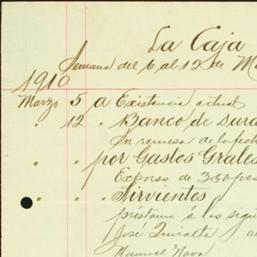 La Caja
Semana del 6 al 12 de M
1910
Marzo 5 a Existencia actual
" 12 " Banco de Dura
Su remesa de la fecha
" " por Gastos Grales
Expreso de 350 pes
" " Sirvientes
préstamo a los sigui
José
Manuel Nava